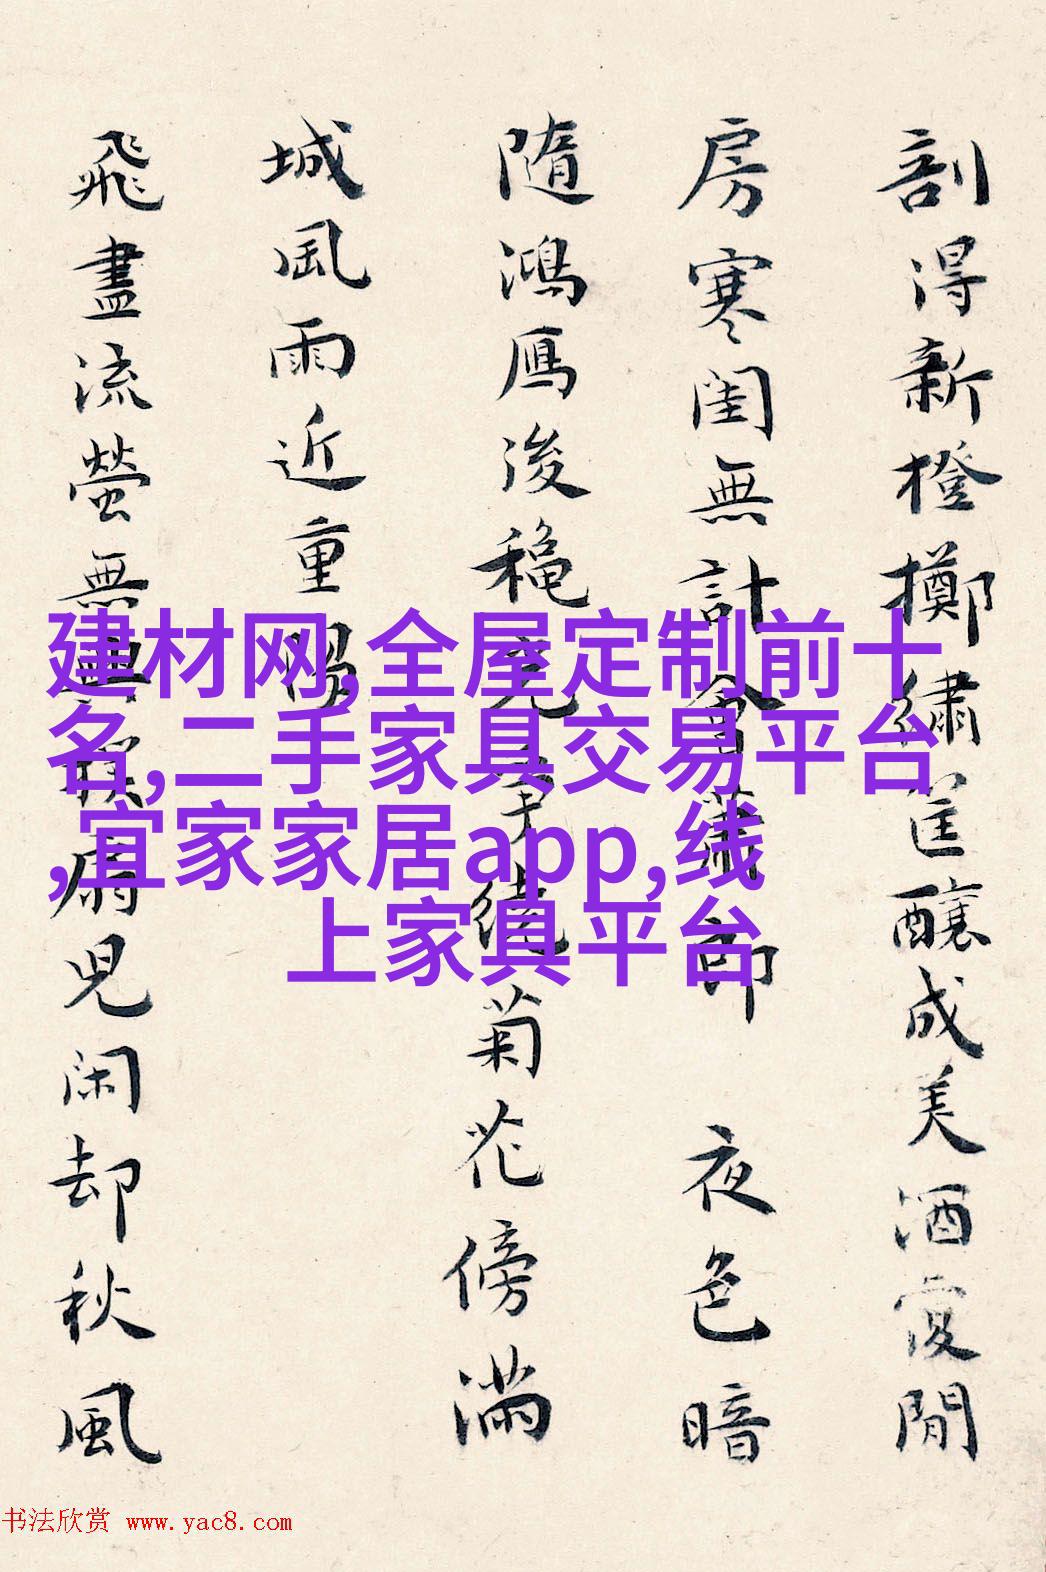 剖得新橙擲繡筐釀成美酒閒
房寒閨無計會蕭郎 夜色暗
隨鴻鴈後穐光繞菊花傍滿
城風雨近重陽
飛盡流螢無與撲扇兒閑却秋風
建材网,全屋定制前十
名,二手家具交易平台
,宜家家居app,线
上家具平台
书法欣赏 www.yac8.com